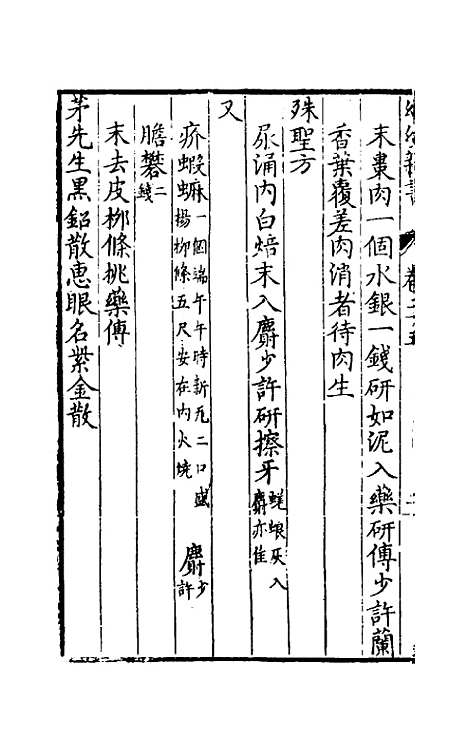 幼幼新書 卷二十五
末棗肉一個水銀一錢研如泥入藥研傅少許蘭
香葉覆差肉消者待肉生
殊聖方
尿涌內白焙末入麝少許研擦牙蜣蜋灰入麝亦佳
又
疥蝦蟇一個端午午時新瓦二口盛楊柳條五尺安在內火燒 麝少許
膽礬二錢
末去皮柳條挑藥傅
茅先生黑鉛散惠眼名紫金散